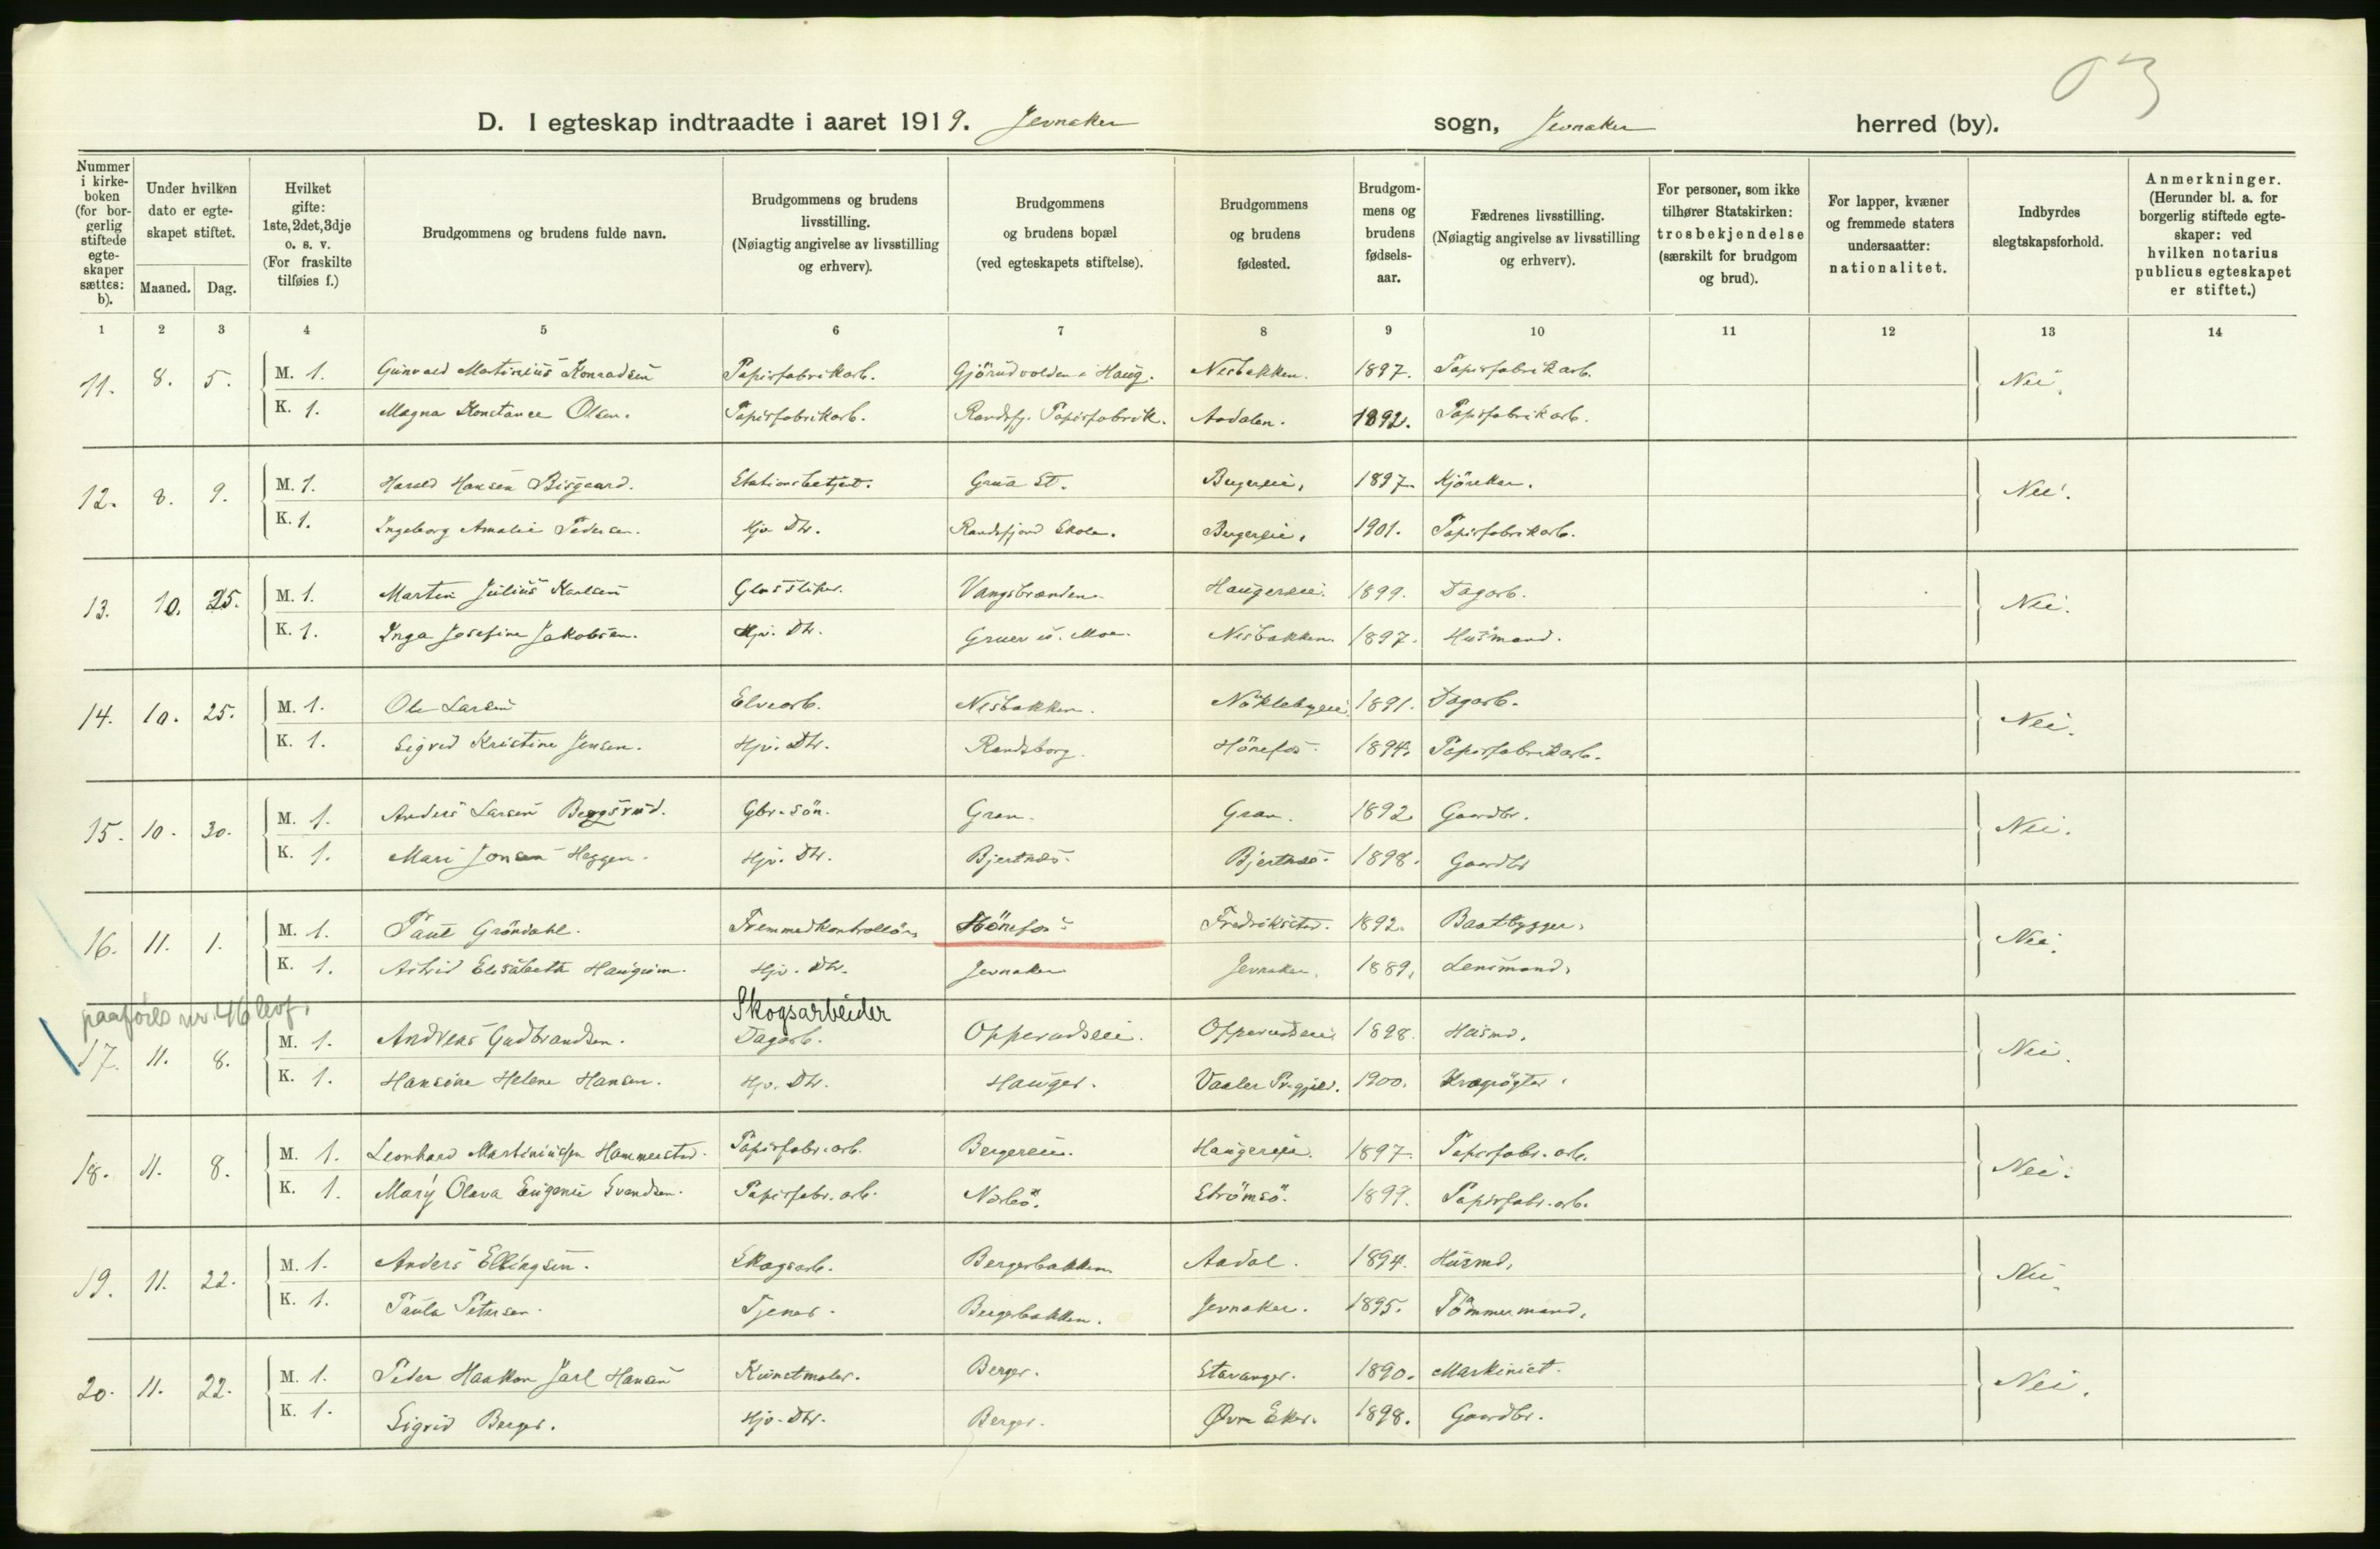 03
D. I egteskap indtraadte i aaret 1919. Jevnaker sogn, Jevnaker herred (by).
Nummer i kirkeboken (for borgerlig stiftede egteskaper sættes: b).
Under hvilken dato er egteskapet stiftet.
Maaned. Dag.
Hvilket gifte: 1ste, 2det, 3dje o. s. v. (For fraskilte tilføies f.)
Brudgommens og brudens fulde navn.
Brudgommens og brudens livsstilling. (Nøiagtig angivelse av livsstilling og erhverv).
Brudgommens og brudens bopæl (ved egteskapets stiftelse).
Brudgommens og brudens fødested.
Brudgommens og brudens fødselsaar.
Fædrenes livsstilling. (Nøiagtig angivelse av livsstilling og erhverv).
For personer, som ikke tilhører Statskirken: trosbekjendelse (særskilt for brudgom og brud).
For lapper, kvæner og fremmede staters undersaatter: nationalitet.
Indbyrdes slegtskapsforhold.
Anmerkninger. (Herunder bl. a. for borgerlig stiftede egteskaper: ved hvilken notarius publicus egteskapet er stiftet.)
1 2 3 4 5 6 7 8 9 10 11 12 13 14
11. 8. 5. M. 1. Gunvald Matinius Konradsen Papirfabrikarb. Gjörudvolden i Haug. Nesbakken. 1897. Papirfabrikarb. Nei.
K. 1. Magna Konstance Olsen. Papirfabrikarb. Randsfj. Papirfabrik. Aadalen. 1892. Papirfabrikarb.
12. 8. 9. M. 1. Harald Hansen Bisgaard. Stationsbetjent. Grua St. Bergereie, 1897. Kjörekar. Nei.
K. 1. Ingeborg Amalie Pedersen. Hjv. Dtr. Randsfjord Skole. Bergereie, 1901. Papirfabrikarb.
13. 10. 25. M. 1. Martin Julius Karlsen Glassliper. Vangsbraaten. Haugereie. 1899. Dagarb. Nei.
K. 1. Inga Josefine Jakobsen. Hjv. Dtr. Gruer u. Moe. Nesbakken. 1897. Husmand.
14. 10. 25. M. 1. Ole Larsen Elvearb. Nesbakken. Nöklebyeie 1891. Dagarb. Nei.
K. 1. Sigrid Kristine Jensen. Hjv. Dtr. Randsborg. Hönefos. 1894. Papirfabrikarb.
15. 10. 30. M. 1. Anders Larsen Bergsrud. Gbr. sön. Gran. Gran. 1892. Gaardbr. Nei.
K. 1. Mari Jonsen Heggen. Hjv. Dtr. Bjertnæs. Bjertnæs. 1898. Gaardbr
16. 11. 1. M. 1. Paul Gröndahl. Fremmedkontrollör. Hönefos Fredrikstad. 1892. Baatbygger. Nei.
K. 1. Astrid Elisabeth Haugum. Hjv. Dtr. Jevnaker Jevnaker. 1889. Lensmand.
paaföres nr. 46
Skogsarbeider
17. 11. 8. M. 1. Andreas Gudbrandsen. Dagarb. Opperudseie. Opperudseie 1898. Husmd. Nei.
K. 1. Hansine Helene Hansen. Hjv. Dtr. Hauger. Vaaler Prgjld. 1900.
18. 11. 8. M. 1. Leonhard Martiniussen Hammerstad. Papirfabr. arb. Bergereie. Haugereie. 1897. Papirfabr. arb. Nei.
K. 1. Mary Olava Eugenie Svendsen. Papirfabr. arb. Strömsö. 1899. Papirfabr. arb.
19. 11. 22. M. 1. Anders Ellingsen. Skogsarb. Bergerbakken. Aadal. 1894. Husmd. Nei.
K. 1. Paula Petersen. Tjener. Bergerbakken. Jevnaker. 1895. Tömmermand.
20. 11. 22. M. 1. Peder Haakon Jarl Hansen Kunstmaler. Berger. Stavanger. 1890. Maskinist. Nei.
K. 1. Sigrid Berger. Hjv. Dtr. Berger. Øvre Eker. 1898. Gaardbr.